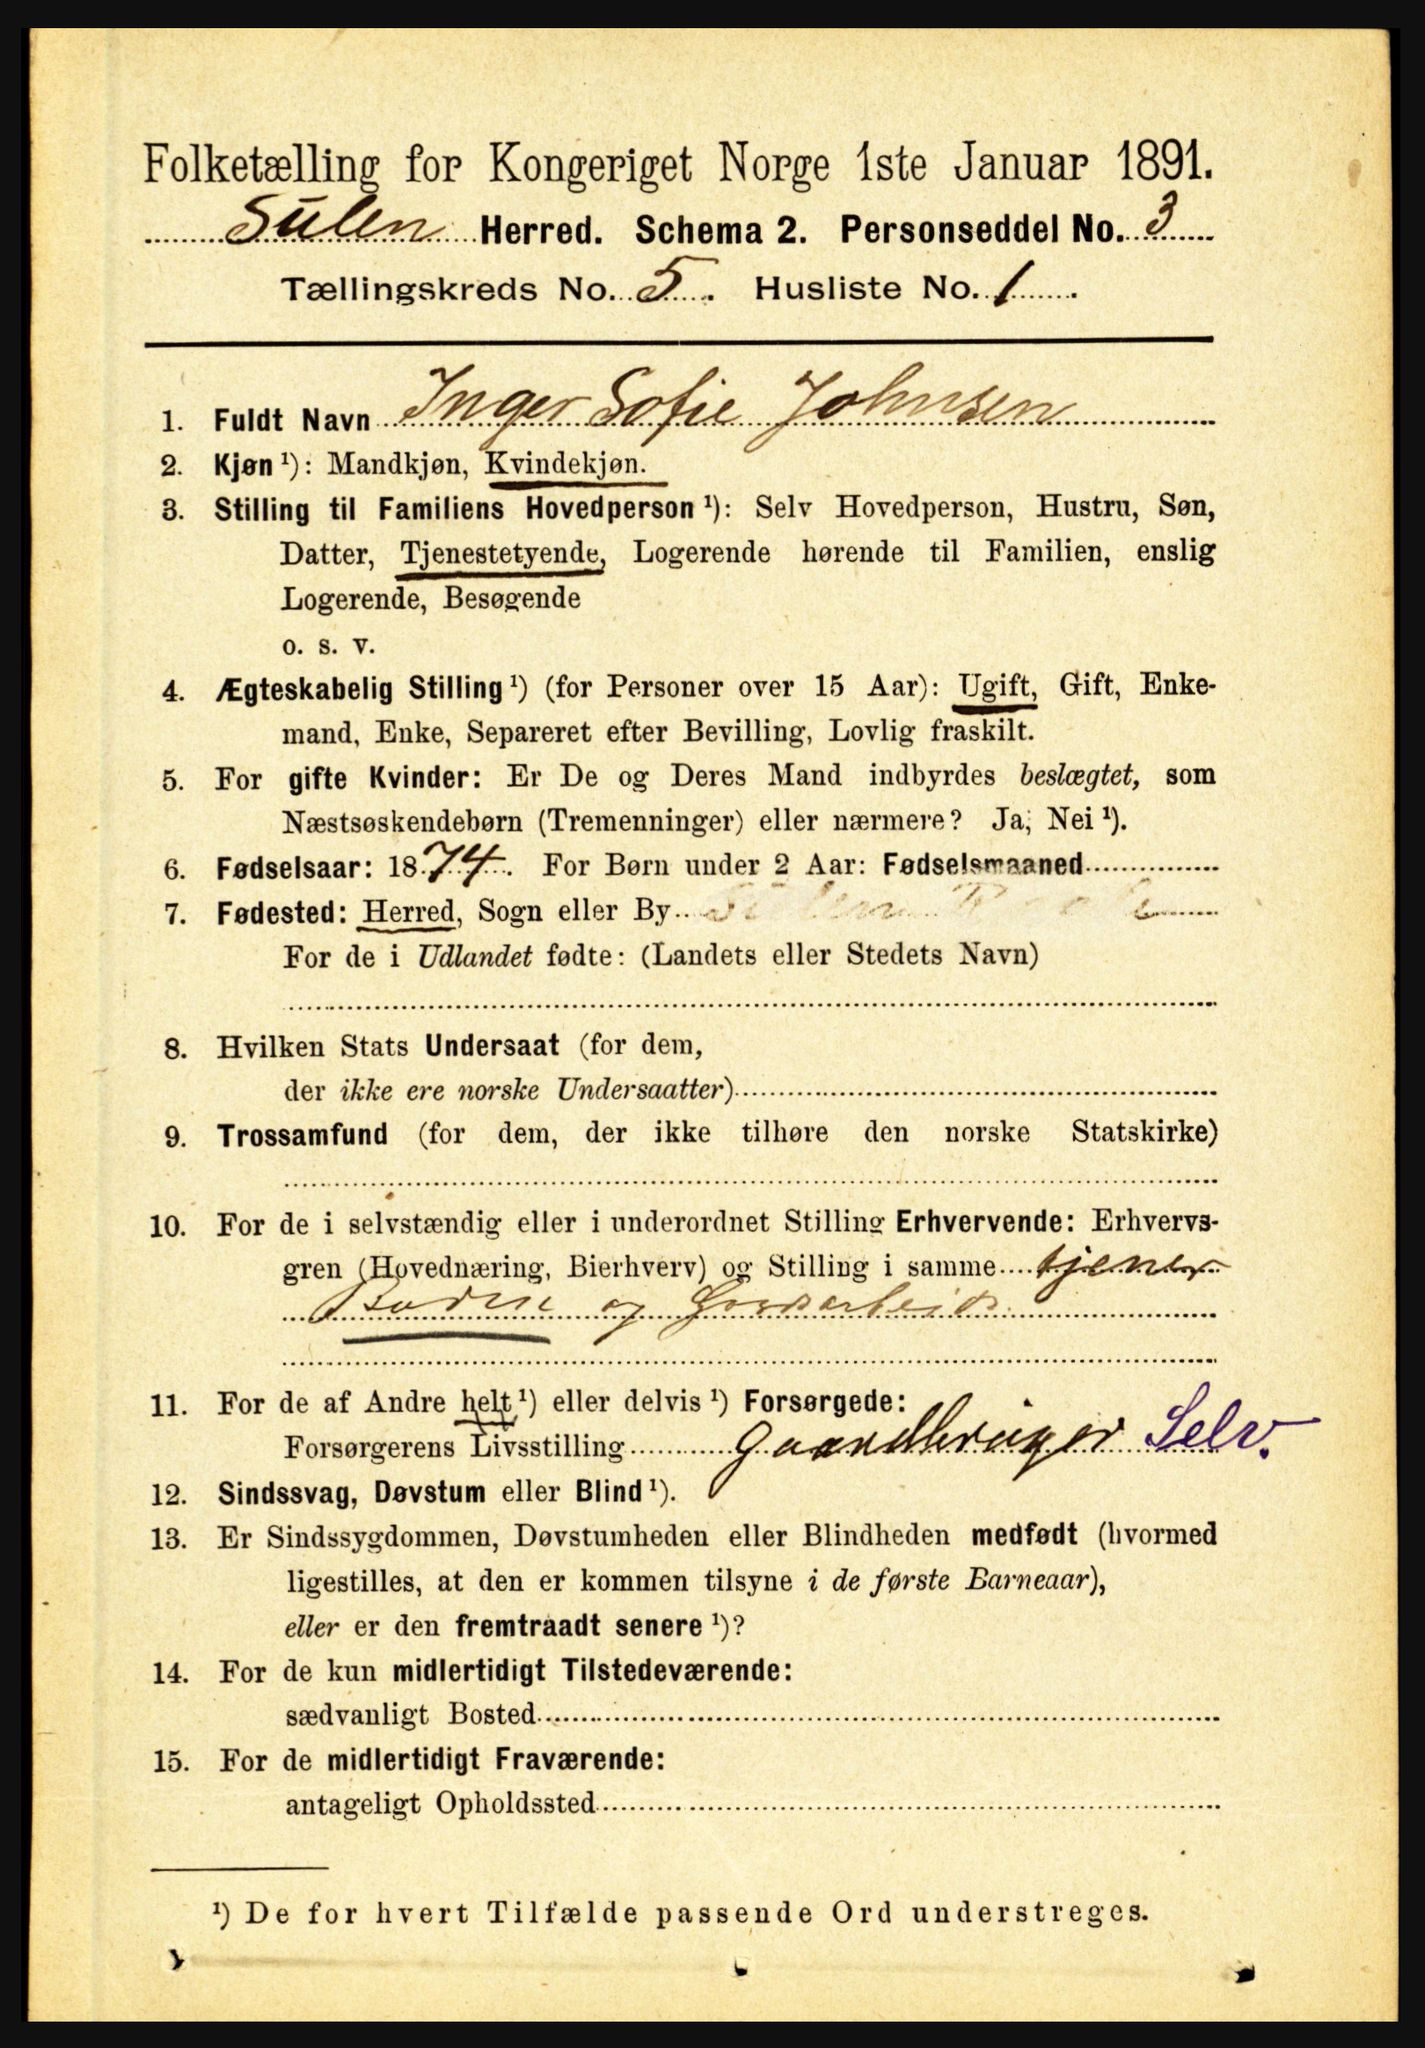 Folketælling for Kongeriget Norge 1ste Januar 1891.
Sulen Herred. Schema 2. Personseddel No. 3
Tællingskreds No. 5. Husliste No. 1.
1. Fuldt Navn Inger Sofie Johnsen
2. Kjøn ¹): Mandkjøn, Kvindekjøn.
3. Stilling til Familiens Hovedperson ¹): Selv Hovedperson, Hustru, Søn,
Datter, Tjenestetyende, Logerende hørende til Familien, enslig
Logerende, Besøgende
o. s. v.
4. Ægteskabelig Stilling ¹) (for Personer over 15 Aar): Ugift, Gift, Enke-
mand, Enke, Separeret efter Bevilling, Lovlig fraskilt.
5. For gifte Kvinder: Er De og Deres Mand indbyrdes beslægtet, som
Næstsøskendebørn (Tremenninger) eller nærmere? Ja, Nei ¹).
6. Fødselsaar: 1874. For Børn under 2 Aar: Fødselsmaaned
7. Fødested: Herred, Sogn eller By Sulen
For de i Udlandet fødte: (Landets eller Stedets Navn)
8. Hvilken Stats Undersaat (for dem,
der ikke ere norske Undersaatter)
9. Trossamfund (for dem, der ikke tilhøre den norske Statskirke)
10. For de i selvstændig eller i underordnet Stilling Erhvervende: Erhvervs-
gren (Hovednæring, Bierhverv) og Stilling i samme tjener
og
11. For de af Andre helt ¹) eller delvis ¹) Forsørgede:
Forsørgerens Livsstilling Gaardbruger Selv.
12. Sindssvag, Døvstum eller Blind ¹).
13. Er Sindssygdommen, Døvstumheden eller Blindheden medfødt (hvormed
ligestilles, at den er kommen tilsyne i de første Barneaar),
eller er den fremtraadt senere ¹)?
14. For de kun midlertidigt Tilstedeværende:
sædvanligt Bosted
15. For de midlertidigt Fraværende:
antageligt Opholdssted
¹) De for hvert Tilfælde passende Ord understreges.